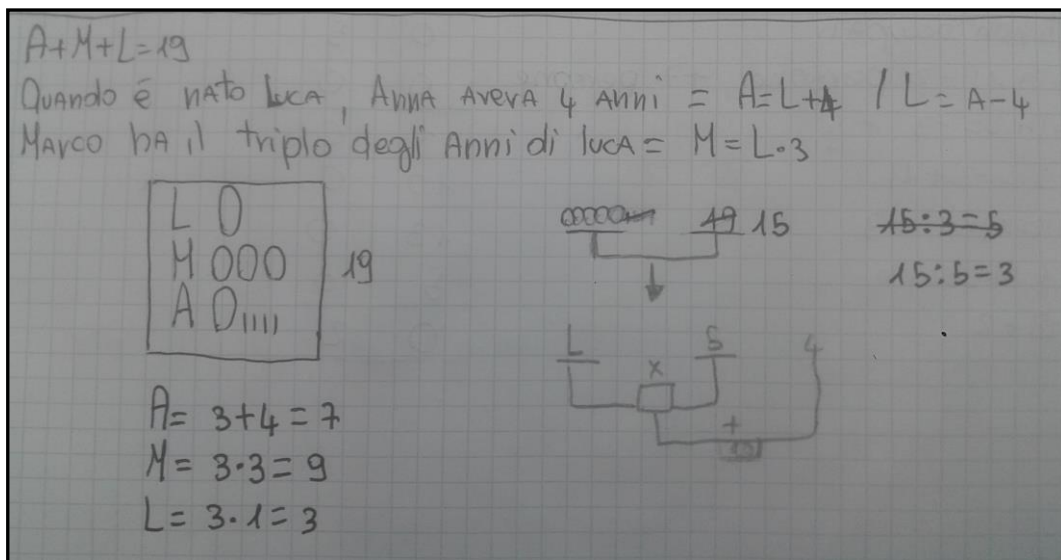 A+M+L=19
Quando è nato Luca, Anna aveva 4 anni = A=L+4 / L=A-4
Marco ha il triplo degli anni di Luca = M=L·3
L 0
M 000
A 0||||
19
00000
19 15
15:3=5
15:5=3
L 5 4
x
+
19
A= 3+4=7
M= 3·3=9
L= 3·1=3